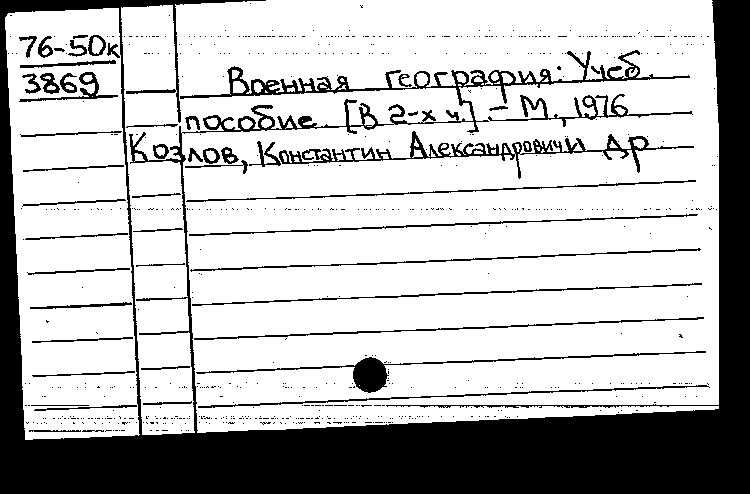 76-50к
3869
Военная география: Учеб.
пособие. [В 2-х ч.] .- М., 1976
Козлов, Константин Александрович и др